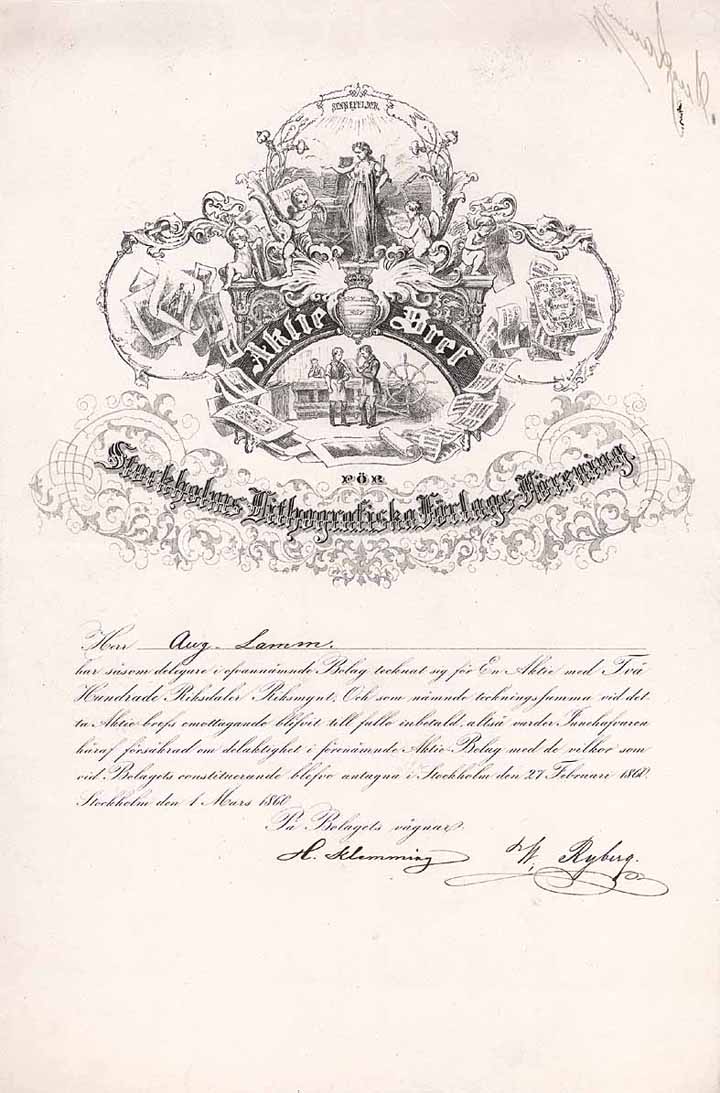 SENNEFELDER
Aktie Bref
FÖR
Stockholms Lithografiska Förlags Förening.
Herr Aug. Lamm.
har såsom delegare i ofvannämnde Bolag tecknat sig för En Aktie med Två
Hundrade Riksdaler Riksmynt, Och som nämnde teckningssumma vid det
ta Aktie brefs emottagande blifvit till fullo inbetald, altså varder Innehafvaren
häraf försäkrad om delaktighet i förenämnde Aktie-Bolag med de vilkor som
vid Bolagets constituerande blefvo antagna i Stockholm den 27 Februari 1860.
Stockholm den 1 Mars 1860
På Bolagets vägnar.
H. Klemming W. Ryberg.